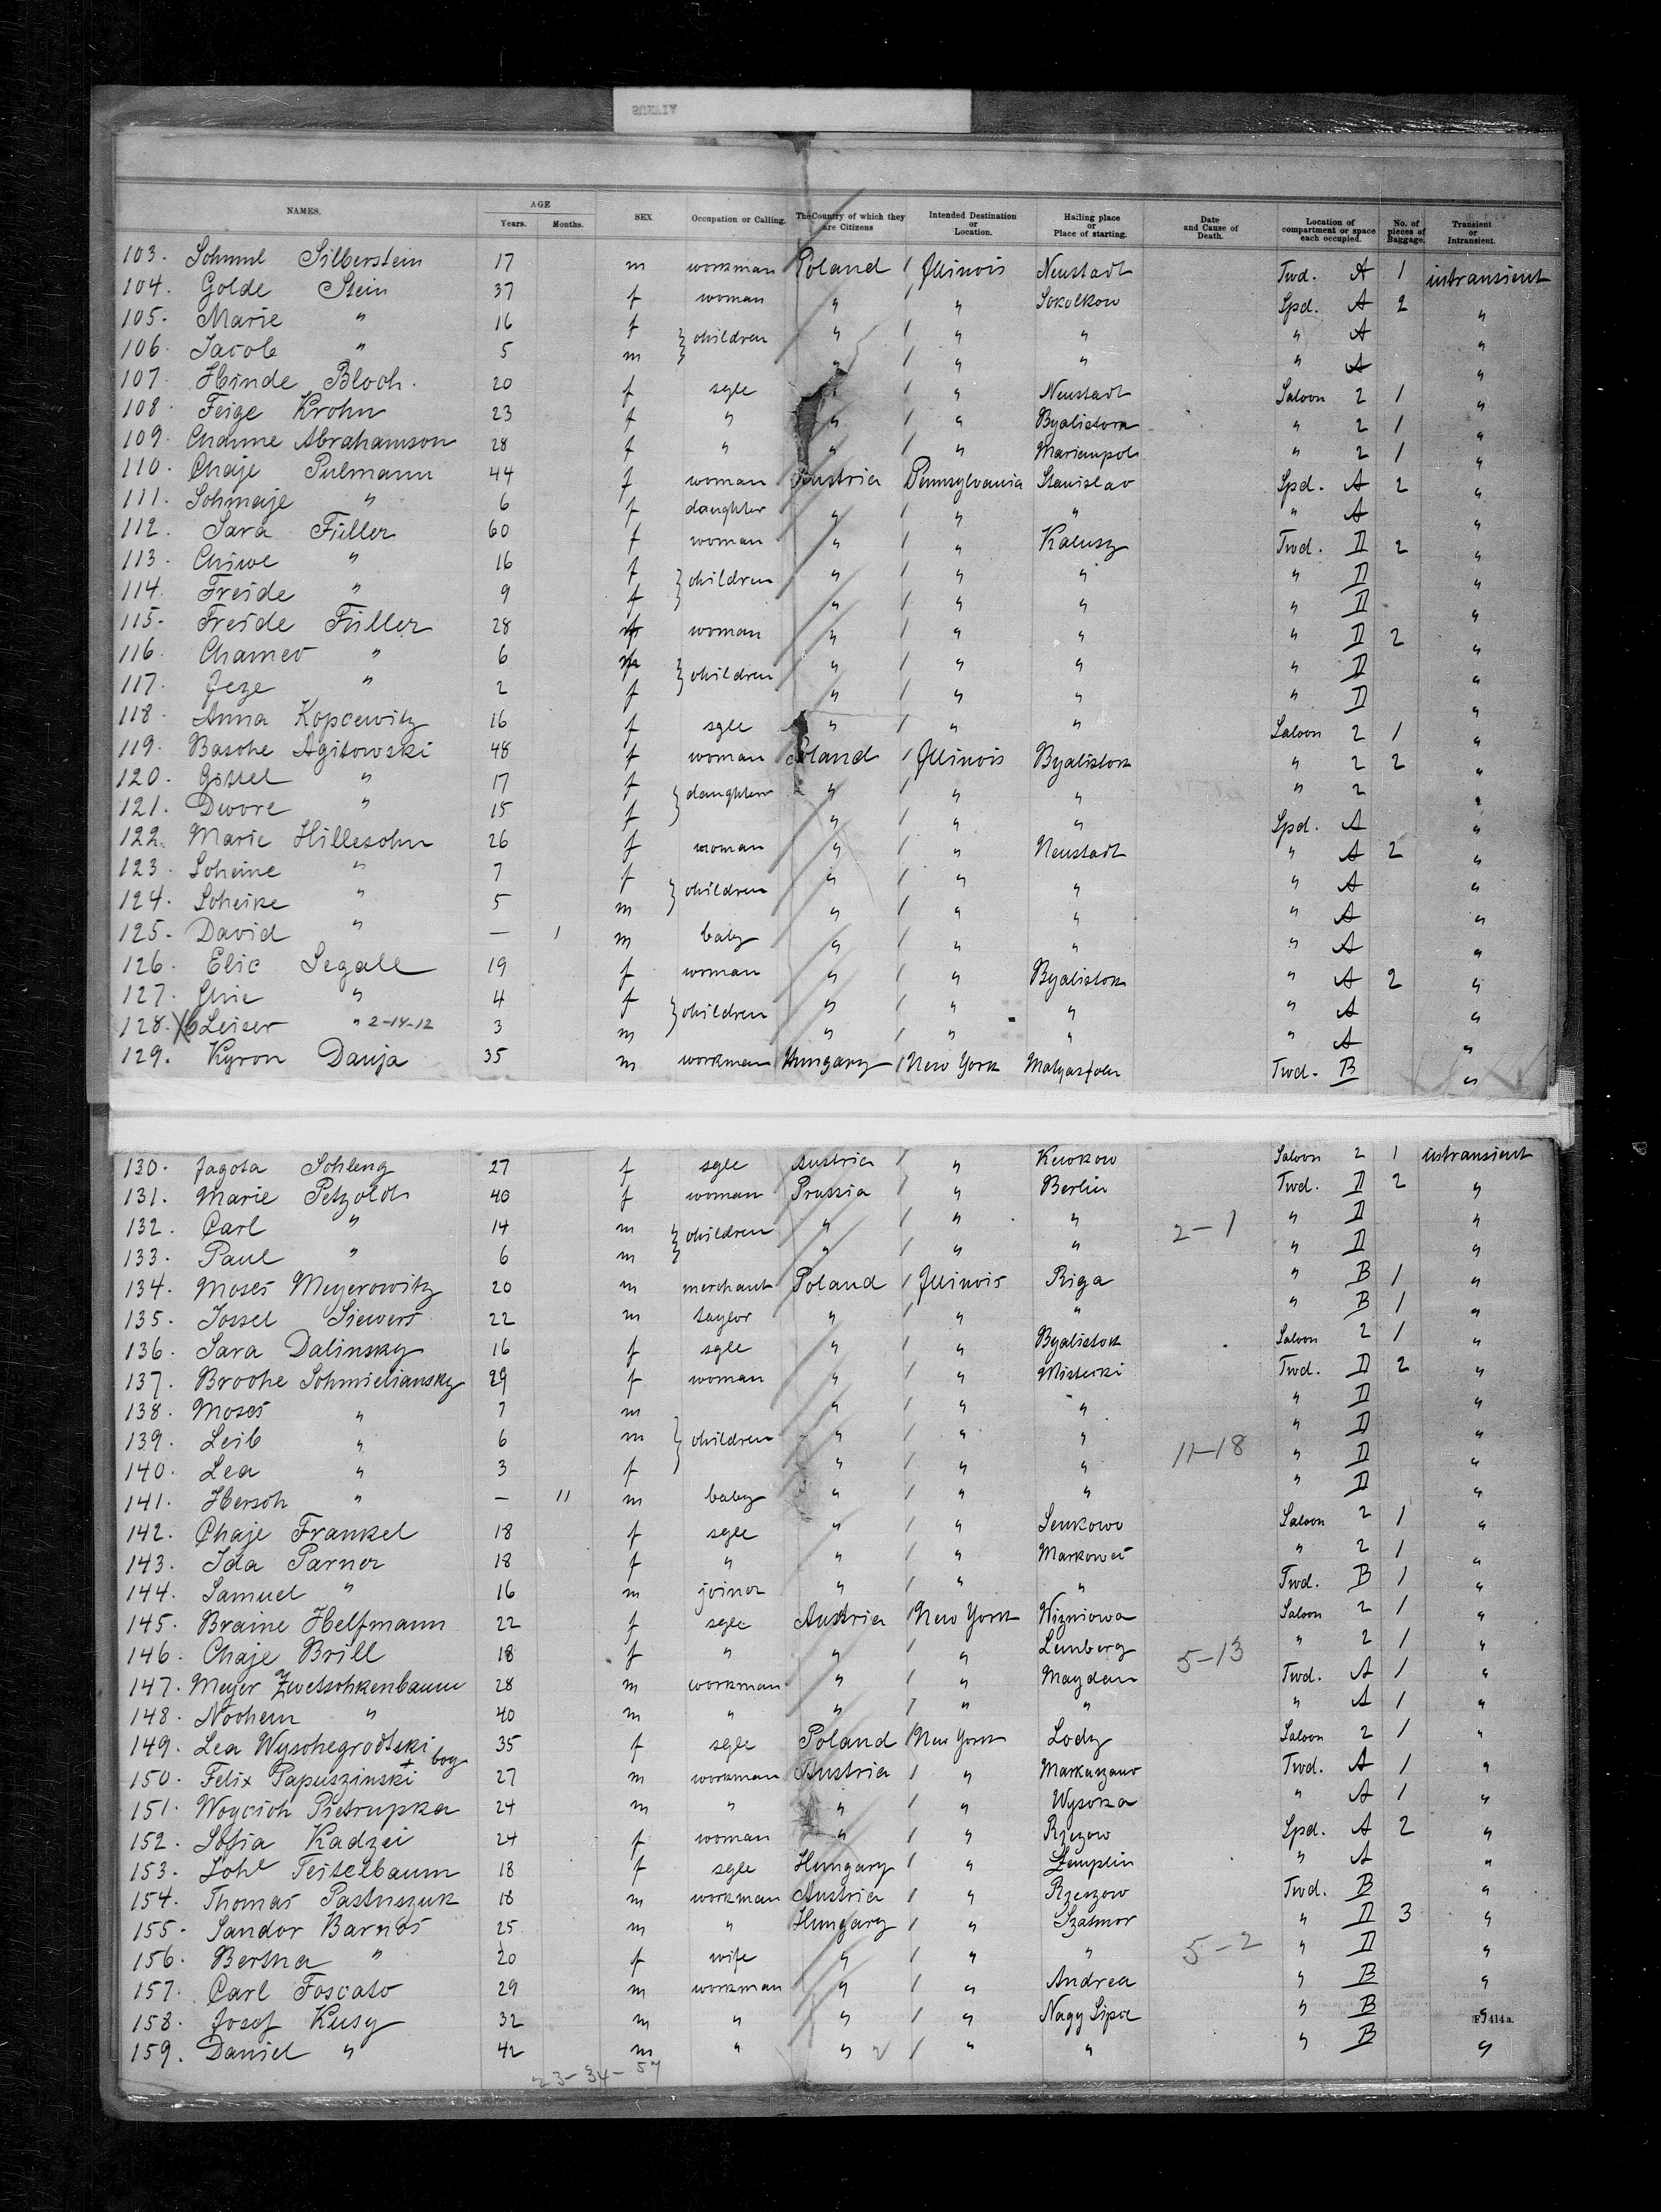 NAMES. AGE Years. Months. SEX Occupation or Calling. The Country of which they are Citizens Intended Destination or Location. Hailing place or Place of starting. Date and Cause of Death. Location of compartment or space each occupied. No. of pieces of Baggage. Transient or Intransient.
103. Schmul Silberstein 17 m workman Poland / Illinois Neustadt Twd. A 1 intransient
104. Golde Stein 37 f woman " / " Sokolkow Spd. A 2 "
105. Marie " 16 f } children " / " " " A "
106. Jacob " 5 m } " / " " " A "
107. Hinde Bloch. 20 f sgle " / " Neustadt Saloon 2 1 "
108. Feige Krohn 23 f " " / " Byalistok " 2 1 "
109. Channe Abrahamson 28 f " " / " Marianpol " 2 1 "
110. Chaje Pulmann 44 f woman Austria Pennsylvania Stanislav Spd. A 2 "
111. Schmaje " 6 f daughter " / " " " A "
112. Sara Füller 60 f woman " / " Kalusz Twd. II 2 "
113. Chiwe " 16 f } children " / " " " II "
114. Freide " 9 f } " / " " " II "
115. Freide Füller 28 f woman " / " " " II 2 "
116. Chamev " 6 m } children " / " " " II "
117. Jeze " 2 f } " / " " " II "
118. Anna Kopcewitz 16 f sgle " / " " Saloon 2 1 "
119. Basche Agitowski 48 f woman Poland / Illinois Byalistok " 2 2 "
120. Gittel " 17 f } daughters " / " " " 2 "
121. Dwore " 15 f } " / " " Spd. A "
122. Marie Hillesohn 26 f woman " / " Neustadt " A 2 "
123. Scheine " 7 f } children " / " " " A "
124. Scheike " 5 m } " / " " " A "
125. David " — 1 m baby " / " " " A "
126. Elic Segall 19 f woman " / " Byalistok " A 2 "
127. " 4 f } children " / " " " A "
128. Leiser " 2-14-12 3 m } " / " " " A "
129. Kyron Danja 35 m workman Hungary / New York Twd. B "
130. Jagota Schleng 27 f sgle Austria / " Saloon 2 1 intransient
131. Marie Petzold 40 f woman Prussia / " Berlin Twd. II 2 "
132. Carl " 14 m } children " / " " 2-1 " II "
133. Paul " 6 m } " / " " " II "
134. Moses Meyerowitz 20 m merchant Poland / Illinois Riga " B 1 "
135. Jossel Siewers 22 m taylor " / " " " B 1 "
136. Sara Dalinsky 16 f sgle " / " Byalistok Saloon 2 1 "
137. Broche Schmieliansky 29 f woman " / " Mistecki Twd. II 2 "
138. Moses " 7 m " / " " " II "
139. Leib " 6 m } children " / " " " II "
140. Lea " 3 f } " / " " 11-18 " II "
141. Hersch " — 11 m baby " / " " " II "
142. Chaje Frankel 18 f sgle " / " Senkowo Saloon 2 1 "
143. Ida Parner 18 f " " / " Markowei " 2 1 "
144. Samuel " 16 m joiner " / " " Twd. B 1 "
145. Braine Helfmann 22 f sgle Austria / New York Wizniowa Saloon 2 1 "
146. Chaje Brill 18 f " " / " Lemberg 5-13 " 2 1 "
147. Meyer Zwetschkenbaum 28 m workman " / " Maydan Twd. A 1 "
148. Nochem " 40 m " " / " " " A 1 "
149. Lea Wyschegrodski 35 f sgle Poland / New York Lodz Saloon 2 1 "
150. Felix Papuszinski + boy 27 m workman Austria / " Markuszano Twd. A 1 "
151. Woycich Pietrupka 24 m " " / " Wysoka " A 1 "
152. Sofia Kadzei 24 f woman " / " Rzezow Spd. A 2 "
153. Sohl Teitelbaum 18 f sgle Hungary / " Zemplin " A "
154. Thomas Pastuszuk 18 m workman Austria / " Rzeszow Twd. B "
155. Sandor Barnos 25 m " Hungary / " Szatmor " II 3 "
156. Bertha " 20 f wife " / " " 5-2 " II "
157. Carl Foscato 29 m workman " / " Andrea " B "
158. Josef Kusy 32 m " " / " Nagy Lipa " B "
F7414a.
159. Daniel " 42 m " " / " " " B "
23-34-57